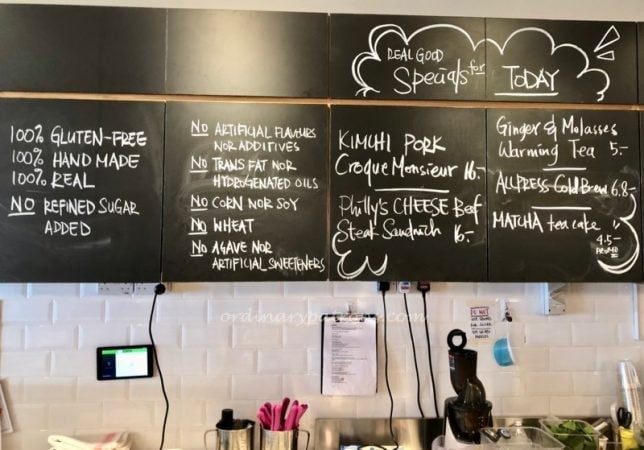 REAL GOOD
Specials for TODAY
100% GLUTEN-FREE
100% HAND MADE
100% REAL
NO REFINED SUGAR
ADDED
NO ARTIFICIAL FLAVOURS
NOR ADDITIVES
NO TRANS FAT NOR
HYDROGENATED OILS
NO CORN NOR SOY
NO WHEAT
NO AGAVE NOR
ARTIFICIAL SWEETENERS
KIMCHI PORK
Croque Monsieur 16.-
Philly's CHEESE Beef
Steak Sandwich 16.-
Ginger & Molasses
Warming Tea 5.-
ALLPRESS Cold Brew 6.8-
MATCHA tea cake
4.5-
ordinarypatrons.com
DO NOT